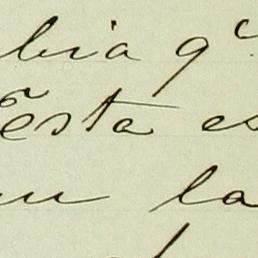 bia qe
Esta es
la